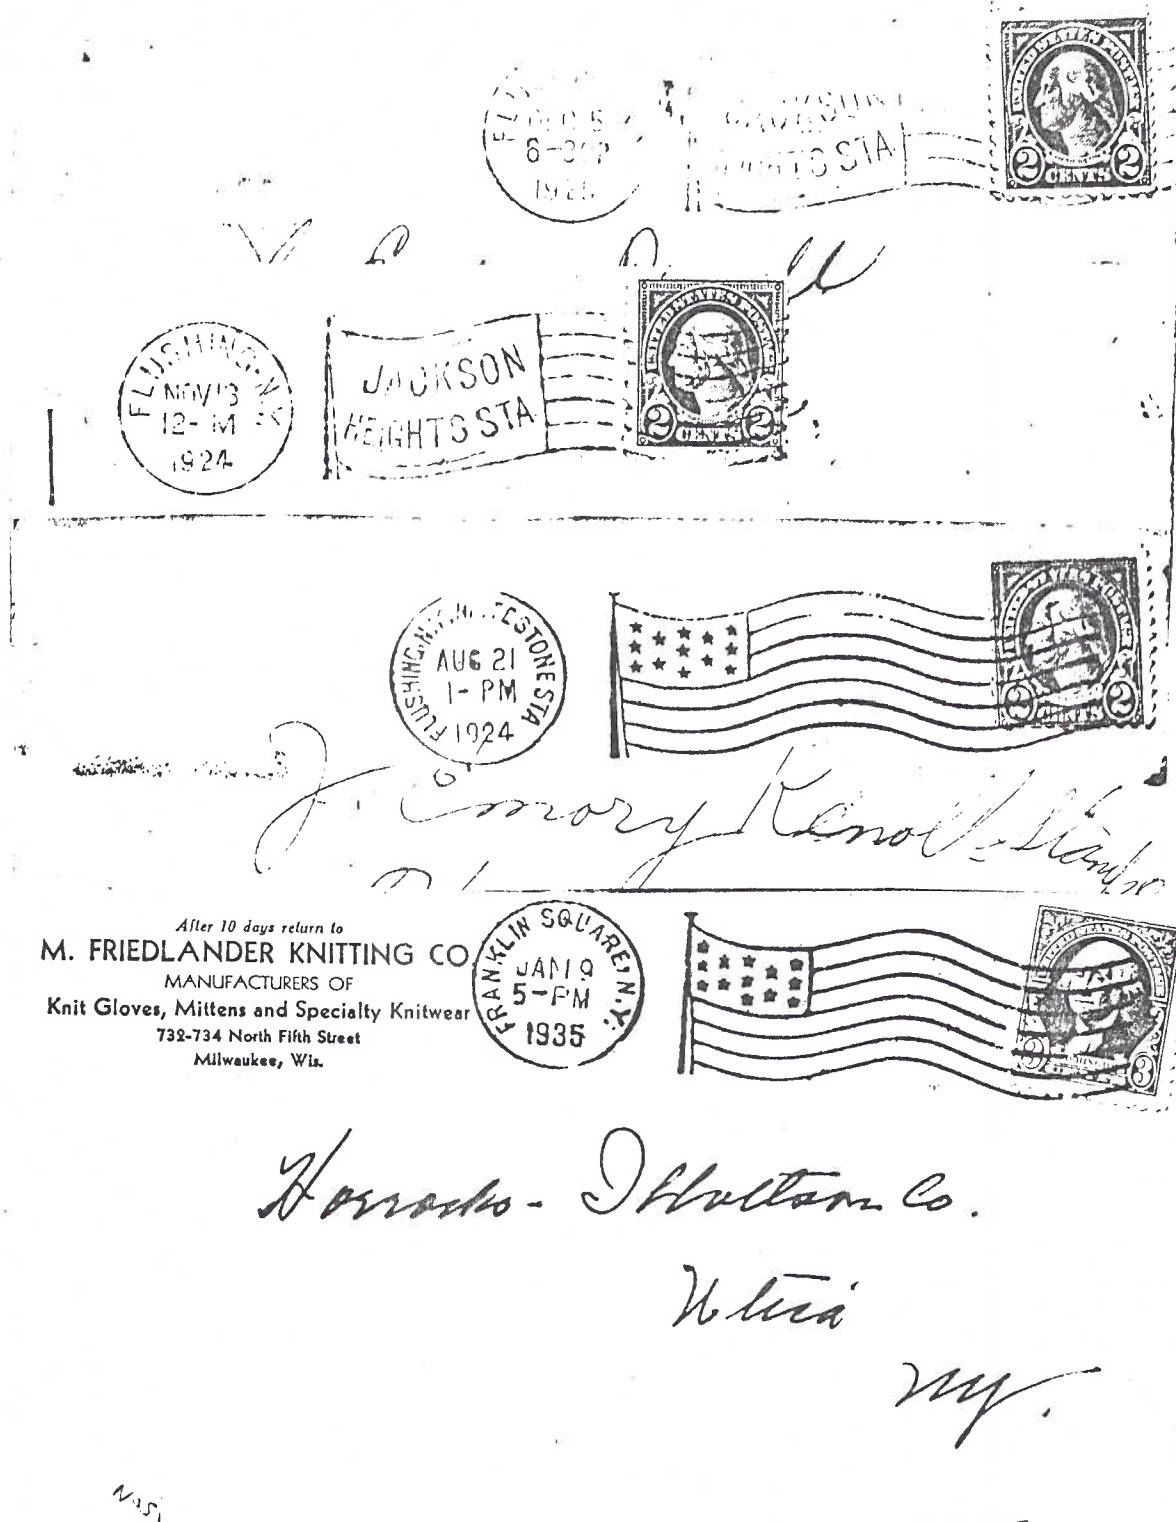 6-
JACKSON
HTS STA
UNITED STATES POSTAGE
2 CENTS 2
FLUSHING N.Y.
NOV 13
12- M
1924
JACKSON
HEIGHTS STA
UNITED STATES POSTAGE
2 CENTS 2
FLUSHING, N.Y. ESTONE STA
AUG 21
1- PM
1924
2 CENTS 2
J. Emory Renoll - Stamp
After 10 days return to
M. FRIEDLANDER KNITTING CO
MANUFACTURERS OF
Knit Gloves, Mittens and Specialty Knitwear
732-734 North Fifth Street
Milwaukee, Wis.
FRANKLIN SQUARE, N.Y.
JAN 19
5-PM
1935
3 3
Horrocks - Ibbotson Co.
Utica
NY.